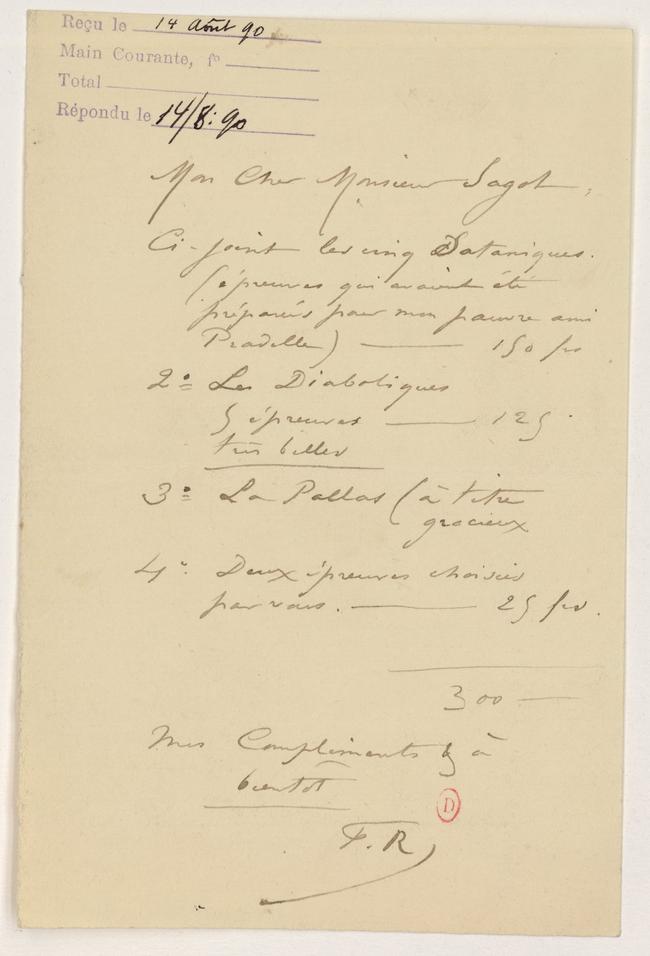 Reçu le 14 Août 90
Main Courante, fo
Total
Répondu le 14/8:90
Mon Cher Monsieur Sagot,
Ci-joint les cinq Sataniques.
(épreuves qui avaient été
préparés pour mon pauvre ami
Pradelle) — 150 frs
2o= Les Diaboliques
5 épreuves — 125
très belles
3o= La Pallas (à titre
gracieux
4o. Deux épreuves choisies
par vous. — 25 frs.
300 —
Mes Compliments & à
bientôt
F. R
D